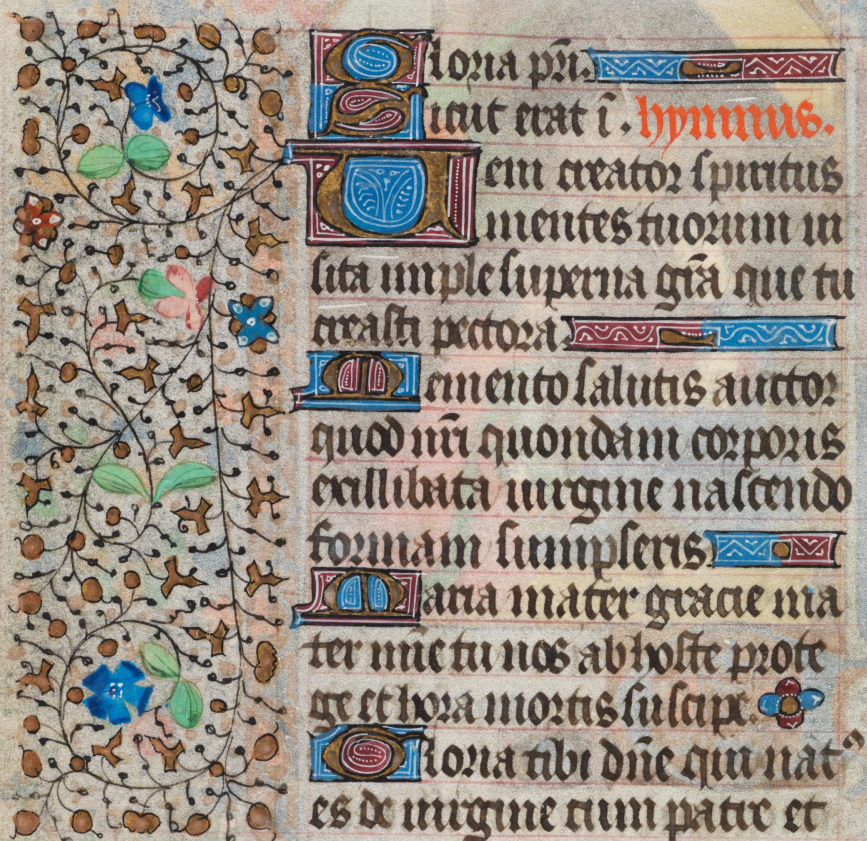 Gloria pr̄i.
Sicut erat ī. hymnus.
Veni creator spiritus
mentes tuorum vi
sita imple superna gr̄a que tu
creasti pectora
Memento salutis auctor
quod nr̄i quondam corporis
ex illibata virgine nascendo
formam sumpseris
Maria mater gracie ma
ter mīe tu nos ab hoste prote
ge et hora mortis suscipe.
Gloria tibi dn̄e qui natꝰ
es de virgine cum patre et